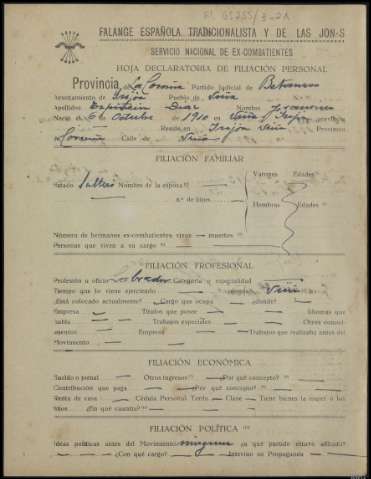 FALANGE ESPAÑOLA TRADICIONALISTA Y DE LAS JON-S
SERVICIO NACIONAL DE EX-COMBATIENTES
HOJA DECLARATORIA DE FILIACIÓN PERSONAL
Provincia de La Coruña Partido Judicial de Betanzos
Ayuntamiento de Irijoa Pueblo de Viña
Apellidos Diaz Nombre Francisco
Nació el 6 de Octubre de 1910 en Viña
Reside en Irijoa Viña Provincia
Coruña Calle de Viña
FILIACIÓN FAMILIAR
Estado Soltero Nombre de la esposa
Varones Edades
n.º de hijos
Hembras Edades
Número de hermanos ex-combatientes vivos — muertos
Personas que viven a su cargo
FILIACIÓN PROFESIONAL
Profesión u oficio Labrador Categoría o especialidad
Tiempo que lo viene ejerciendo
¿Está colocado actualmente? Cargo que ocupa ¿donde?
Empresa Títulos que posee Idiomas que
habla Trabajos especiales Obras
Empresa Trabajos que realizaba antes del
Movimiento
FILIACIÓN ECONÓMICA
Sueldo o jornal Otros ingresos ¿Por qué concepto?
Contribución que paga ¿Por qué concepto?
Renta de casa Cédula Personal Tarifa Clase Tiene bienes la mujer o los
hijos ¿En qué cuantía?
FILIACIÓN POLÍTICA
Ideas políticas antes del Movimiento ninguna en qué partido estuvo afiliado?
¿Con qué cargo? Intervino en Propaganda